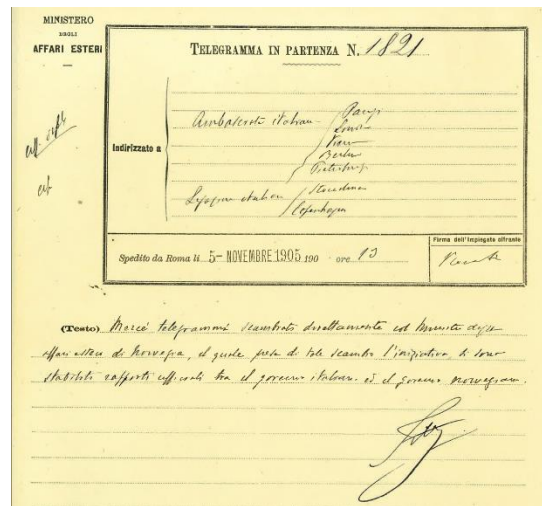 MINISTERO
DEGLI
AFFARI ESTERI
TELEGRAMMA IN PARTENZA N. 1821
Indirizzato a
Ambasciate italiane
Parigi
Londra
Vienna
Berlino
Pietroburgo
Legazioni italiane
Copenhagen
Spedito da Roma li 5- NOVEMBRE 1905 190 ore 13
Firma dell'Impiegato cifrante
(Testo) Mercé telegrammi scambiati direttamente col Ministro degli
affari esteri di Norvegia, il quale prese di tale scambio l'iniziativa, si sono
stabiliti rapporti ufficiali tra il governo italiano ed il governo norvegiano.